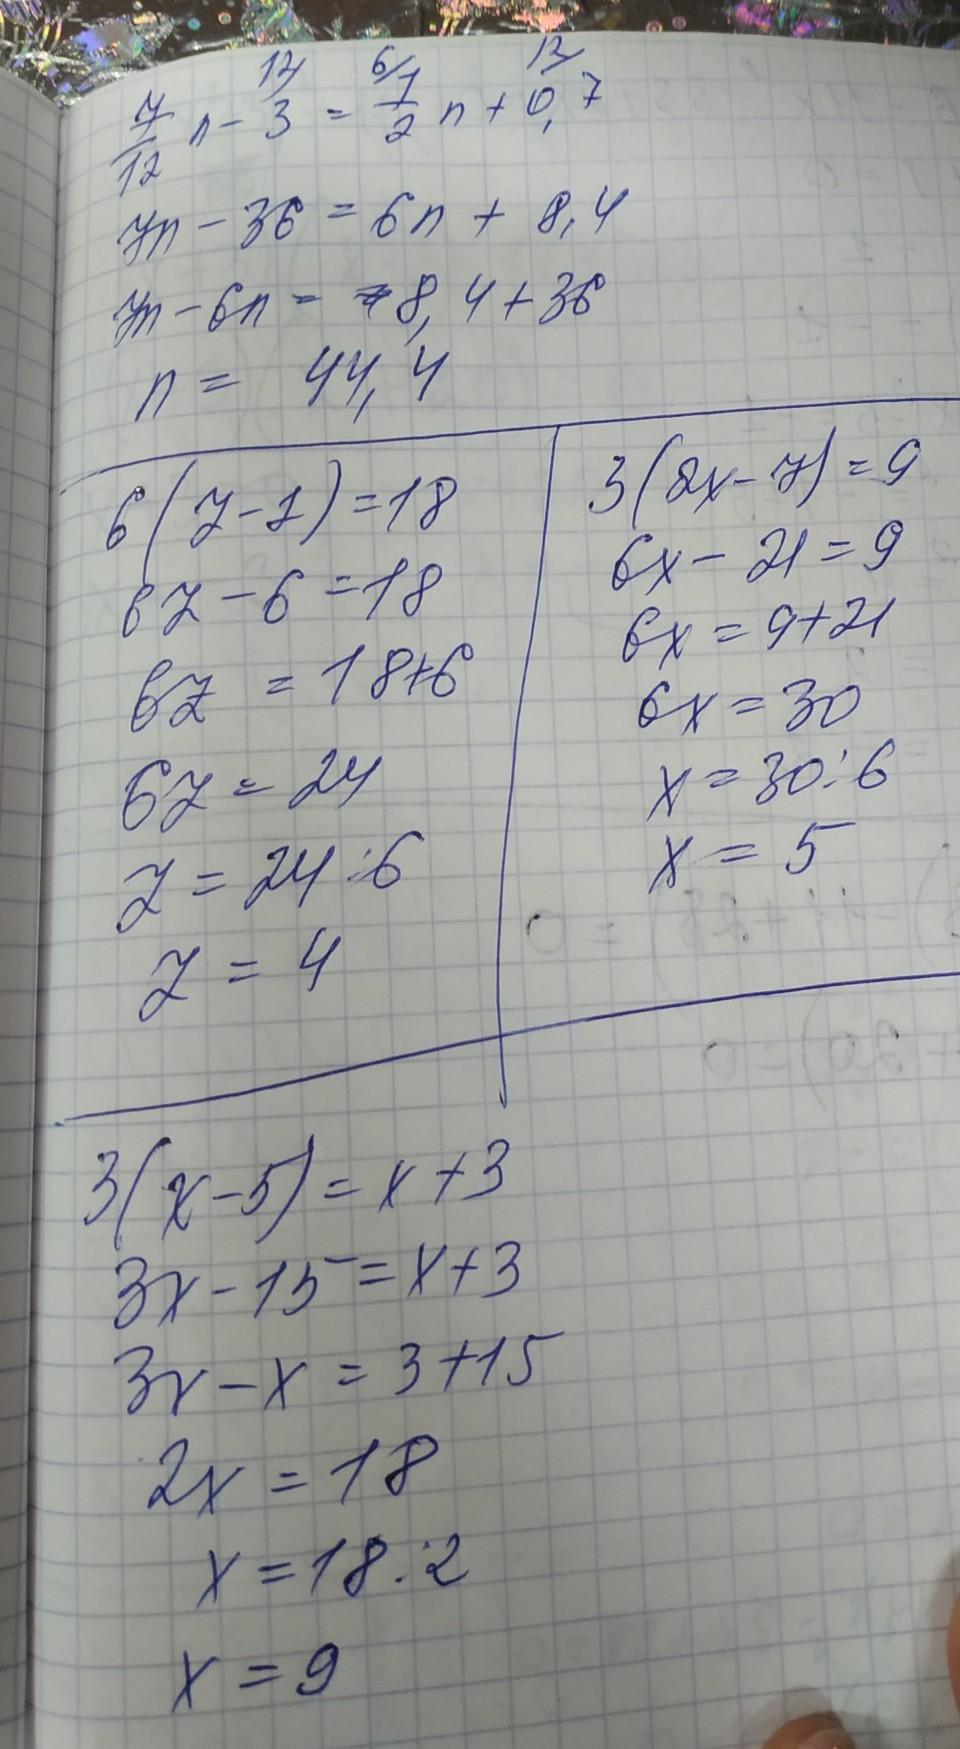 12/ 6/ 12/
7/12 n - 3 = 1/2 n + 0,7
7n - 36 = 6n + 8,4
7n - 6n = 8,4 + 36
n = 44,4
6(y-1) = 18
6y - 6 = 18
6y = 18+6
6y = 24
y = 24:6
y = 4
3(2x-7) = 9
6x - 21 = 9
6x = 9+21
6x = 30
x = 30:6
x = 5
3(x-5) = x+3
3x - 15 = x+3
3x - x = 3+15
2x = 18
x = 18:2
x = 9